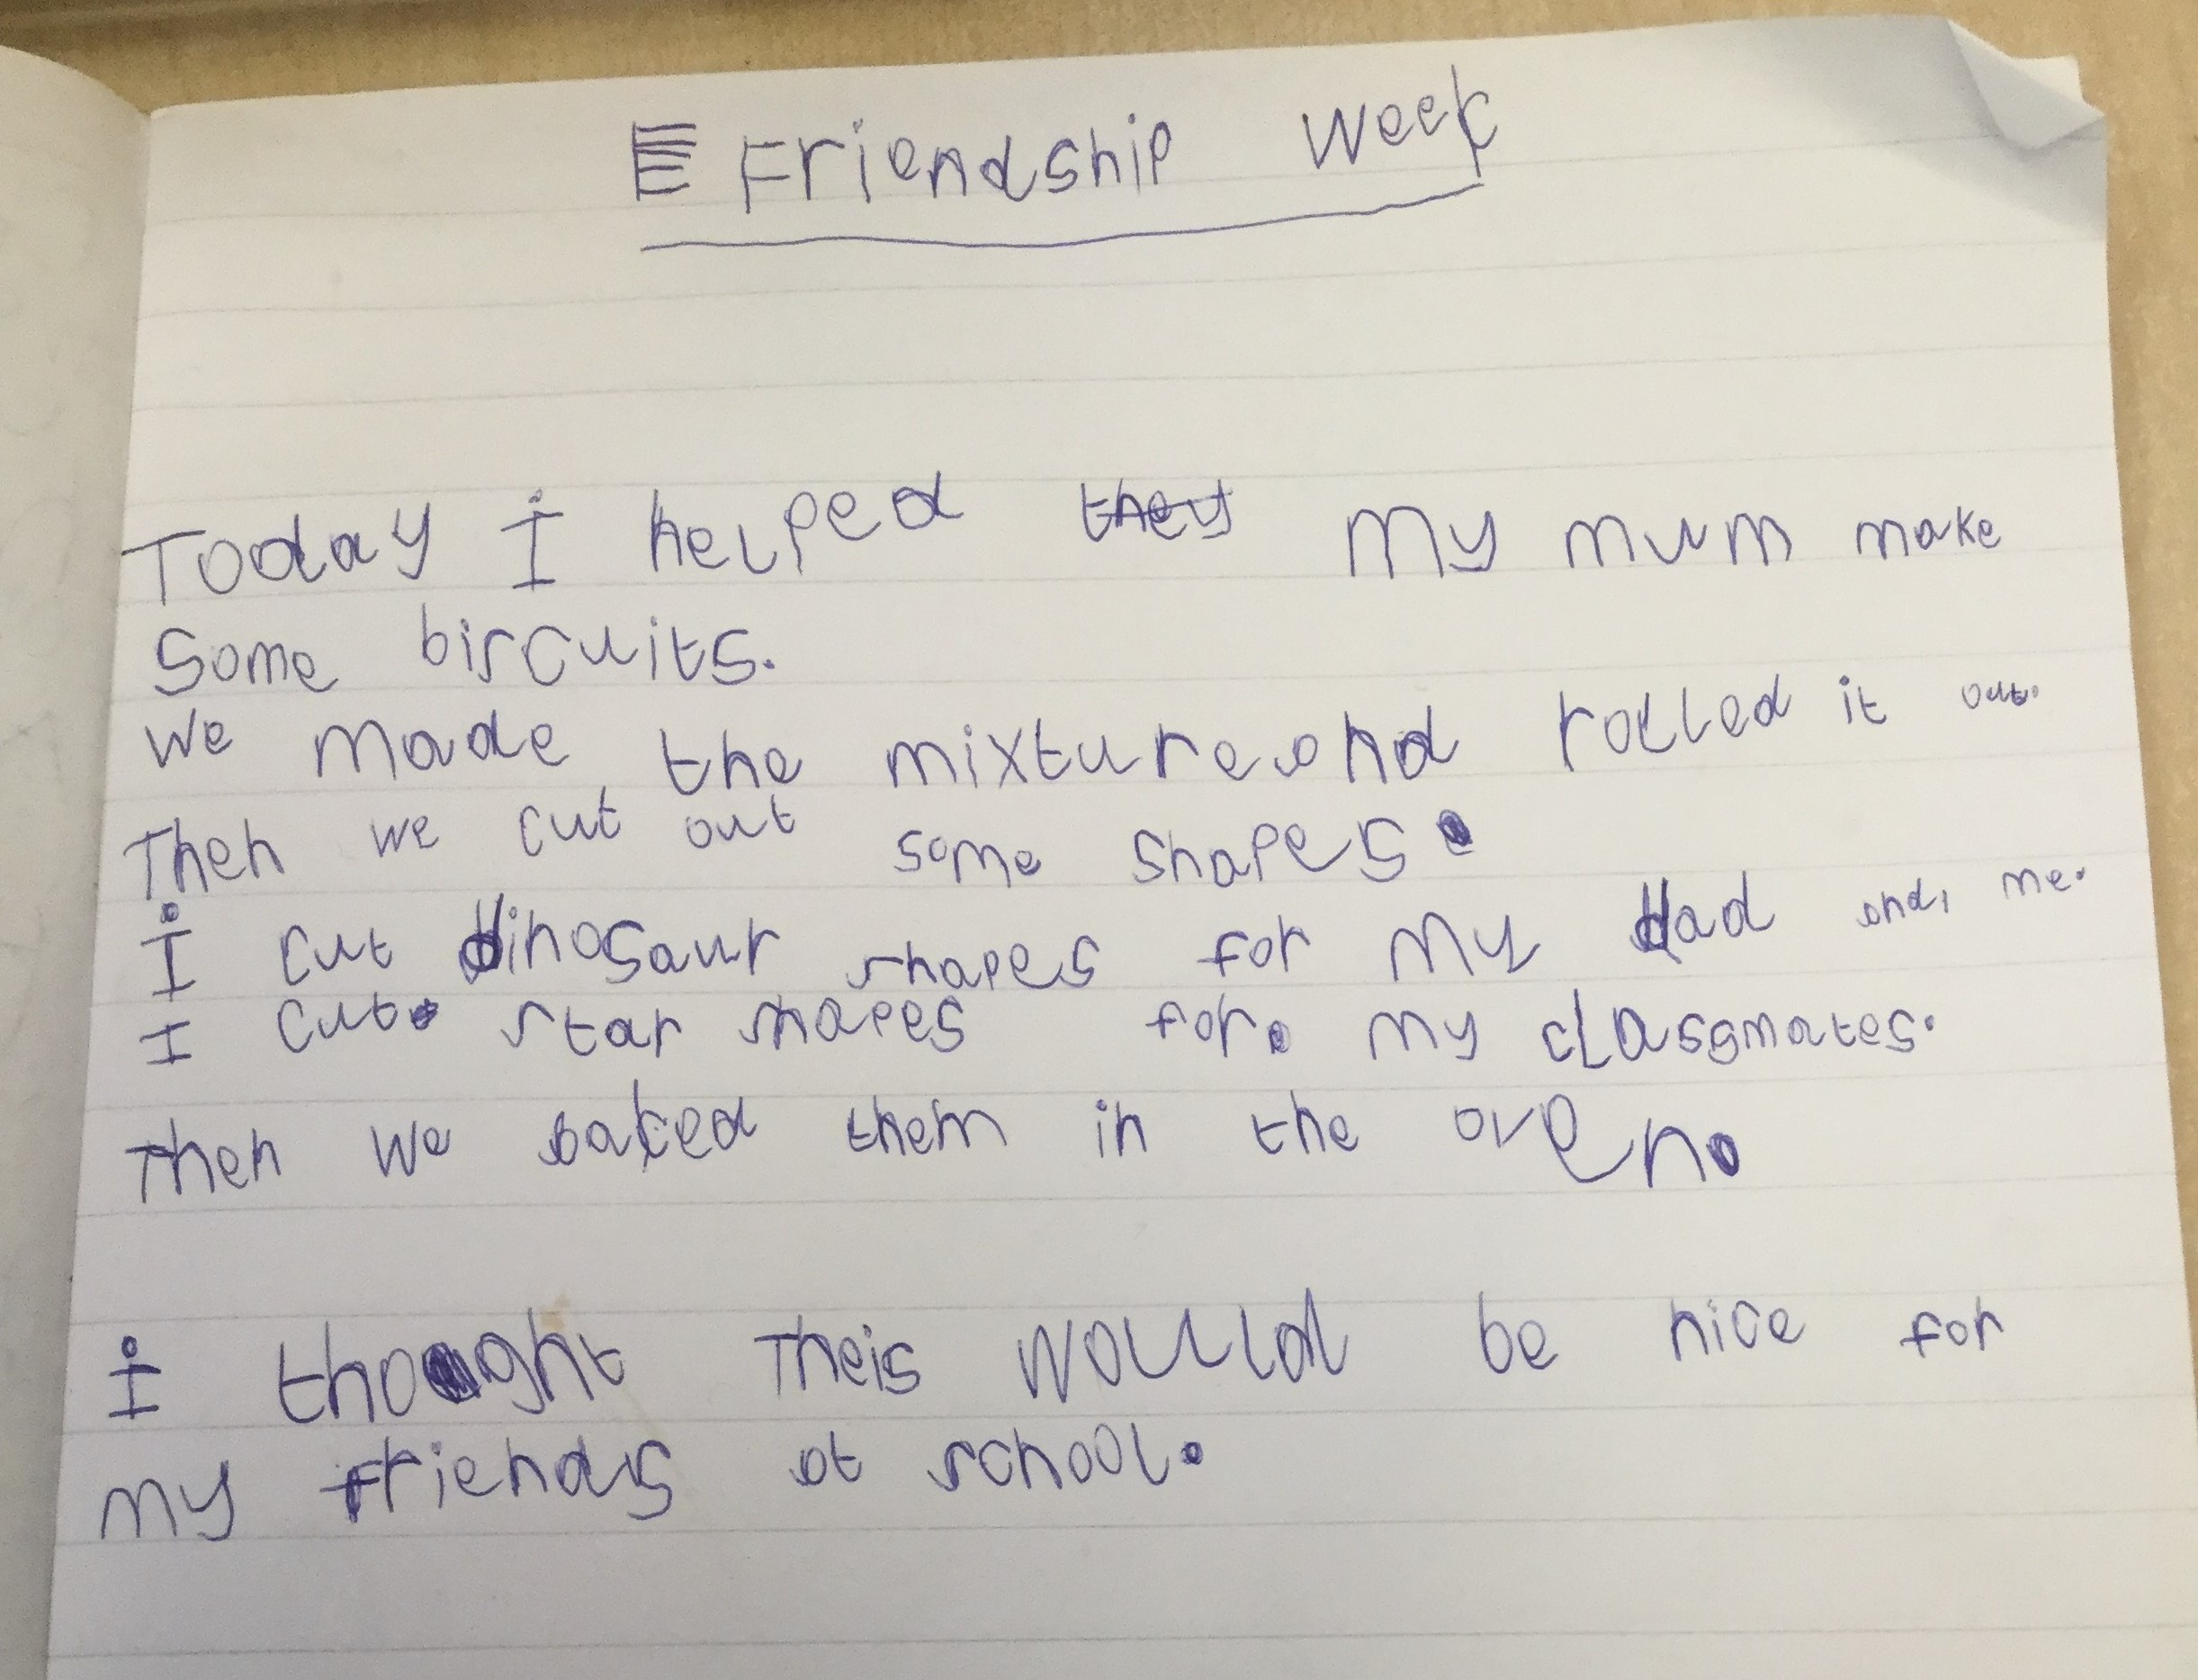 Friendship Week
Today I helped they my mum make
some bircuits.
We made the mixture and rolled it out.
Then we cut out some shapes.
I cut dinosaur shapes for my dad and, me.
I cut star shapes for my classmates.
Then we baked them in the oven.
I thought Theis would be nice for
my friends at school.